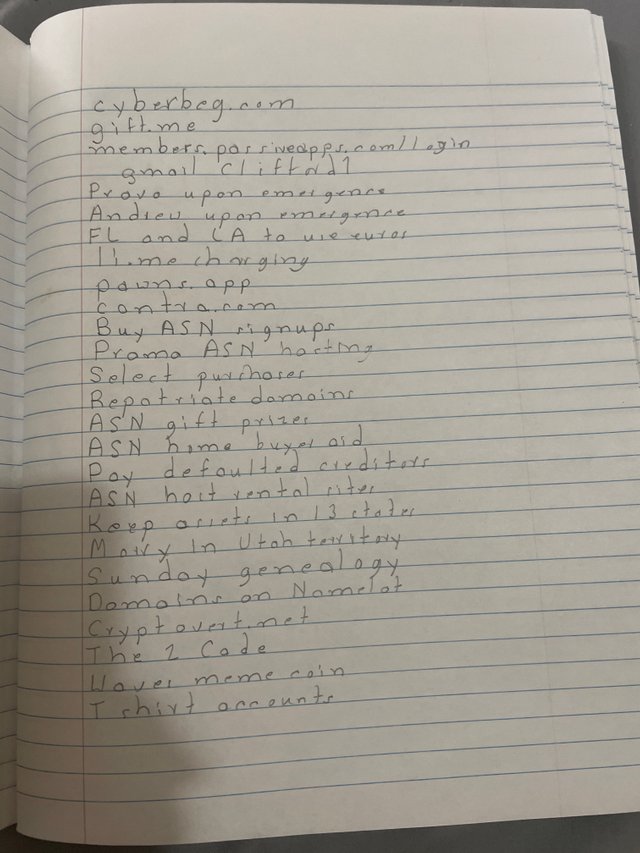 cyberbeg.com
gift.me
members.passiveapps.com/login
gmail Cliftnd1
Provo upon emergence
Andrew upon emergence
FL and CA to use euros
11.me charging
pawns.app
contra.com
Buy ASN signups
Promo ASN hosting
Select purchases
Repatriate domains
ASN gift prizes
ASN home buyer aid
Pay defaulted creditors
ASN host rental sites
Keep assets in 13 states
Marry in Utah territory
Sunday genealogy
Domains on Namelot
Cryptovert.net
The 2 Code
Waves meme coin
T shirt accounts